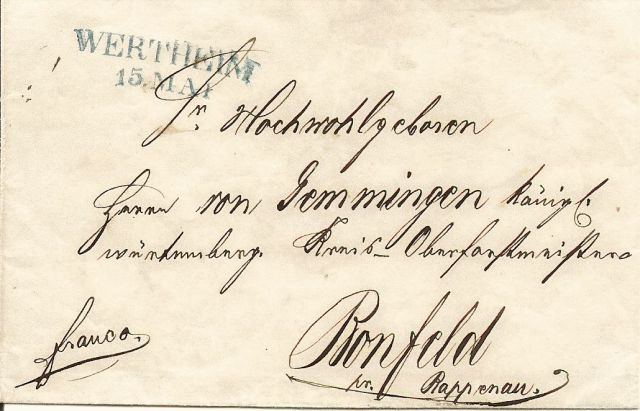 WERTHEIM
15. MAI
Sr. Hochwohlgeboren
Herrn von Gemmingen Königl.
würtemberg. Kreis-Oberforstmeister
franco.
Bonfeld
pr. Rappenau.